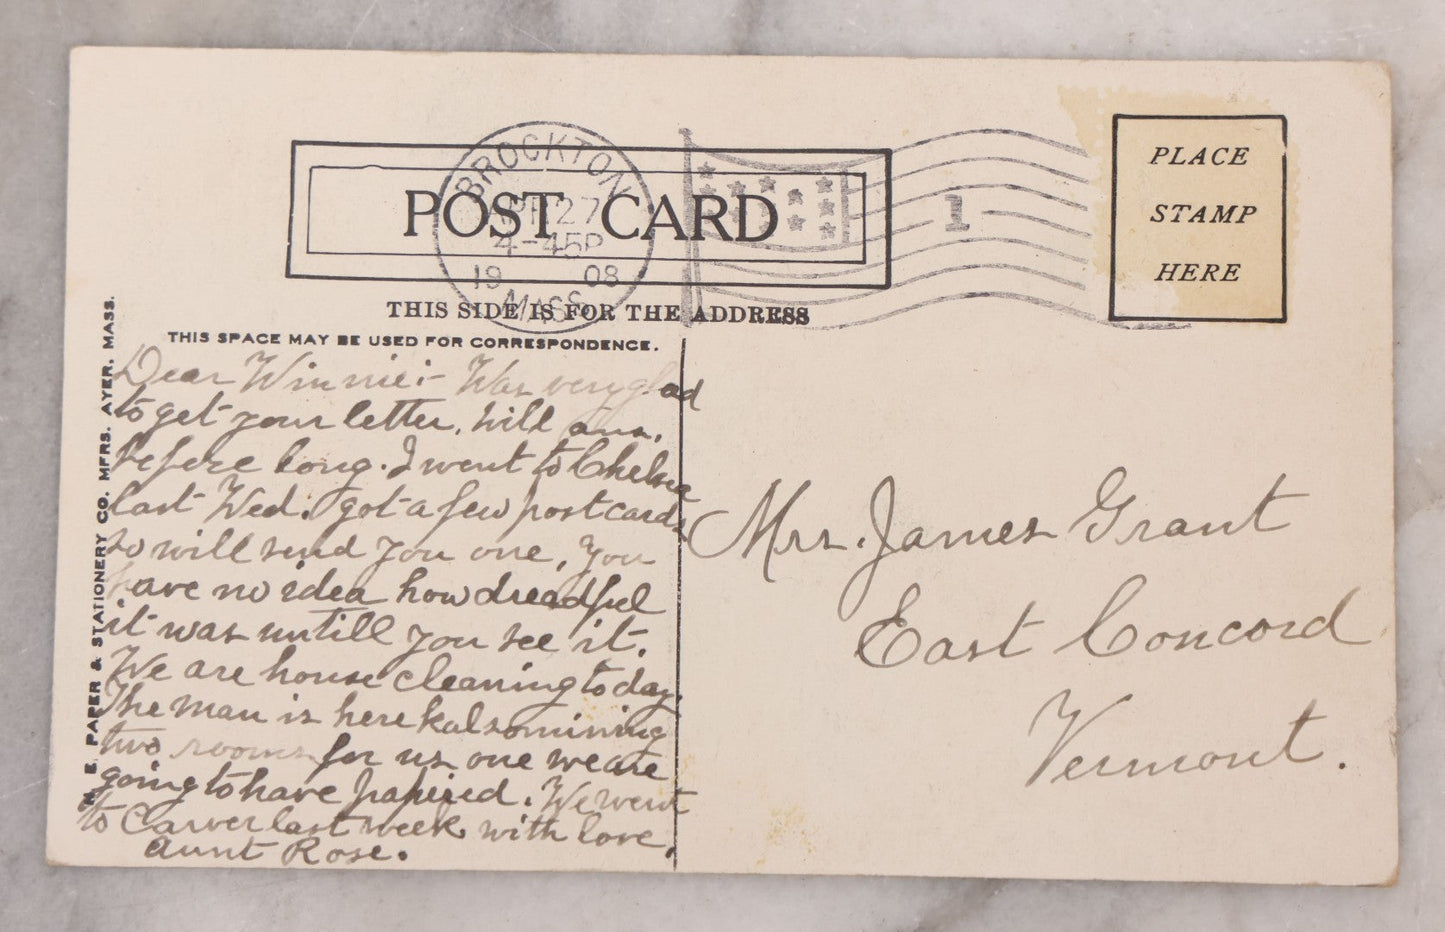 BROCKTON
APR 27
4-45P
19 08
MASS.
1
POST CARD
THIS SIDE IS FOR THE ADDRESS
PLACE
STAMP
HERE
THIS SPACE MAY BE USED FOR CORRESPONDENCE.
N. E. PAPER & STATIONERY CO. MFRS. AYER. MASS.
Dear Winnie:- Was very glad
to get your letter, will ans.
before long. I went to Chelsea
last Wed. I got a few post cards
so will send you one, You
have no idea how dreadful
it was untill you see it.
We are house cleaning to day.
The man is here kalsomining
two rooms for us one we are
going to have papered. We went
to Carver last week with love,
Aunt Rose.
Mrs. James Grant
East Concord
Vermont.